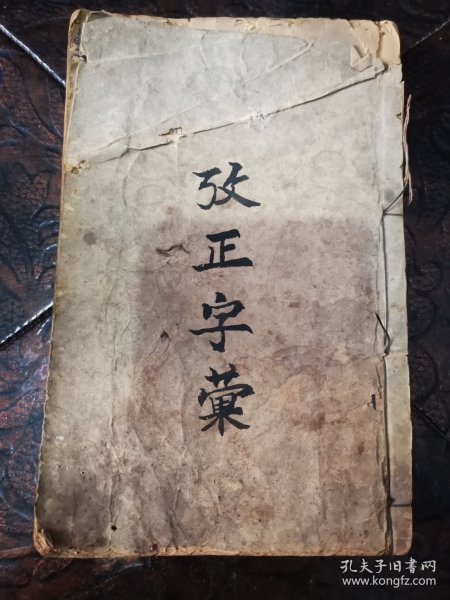 攷正字彙
孔夫子旧书网
www.kongfz.com